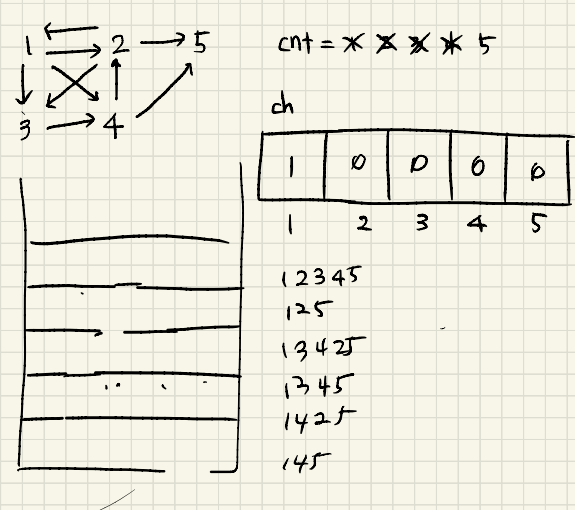 1 2 5
3 4
cnt = 5
ch
1 0 0 0 0
1 2 3 4 5
12345
125
13425
1345
1425
145